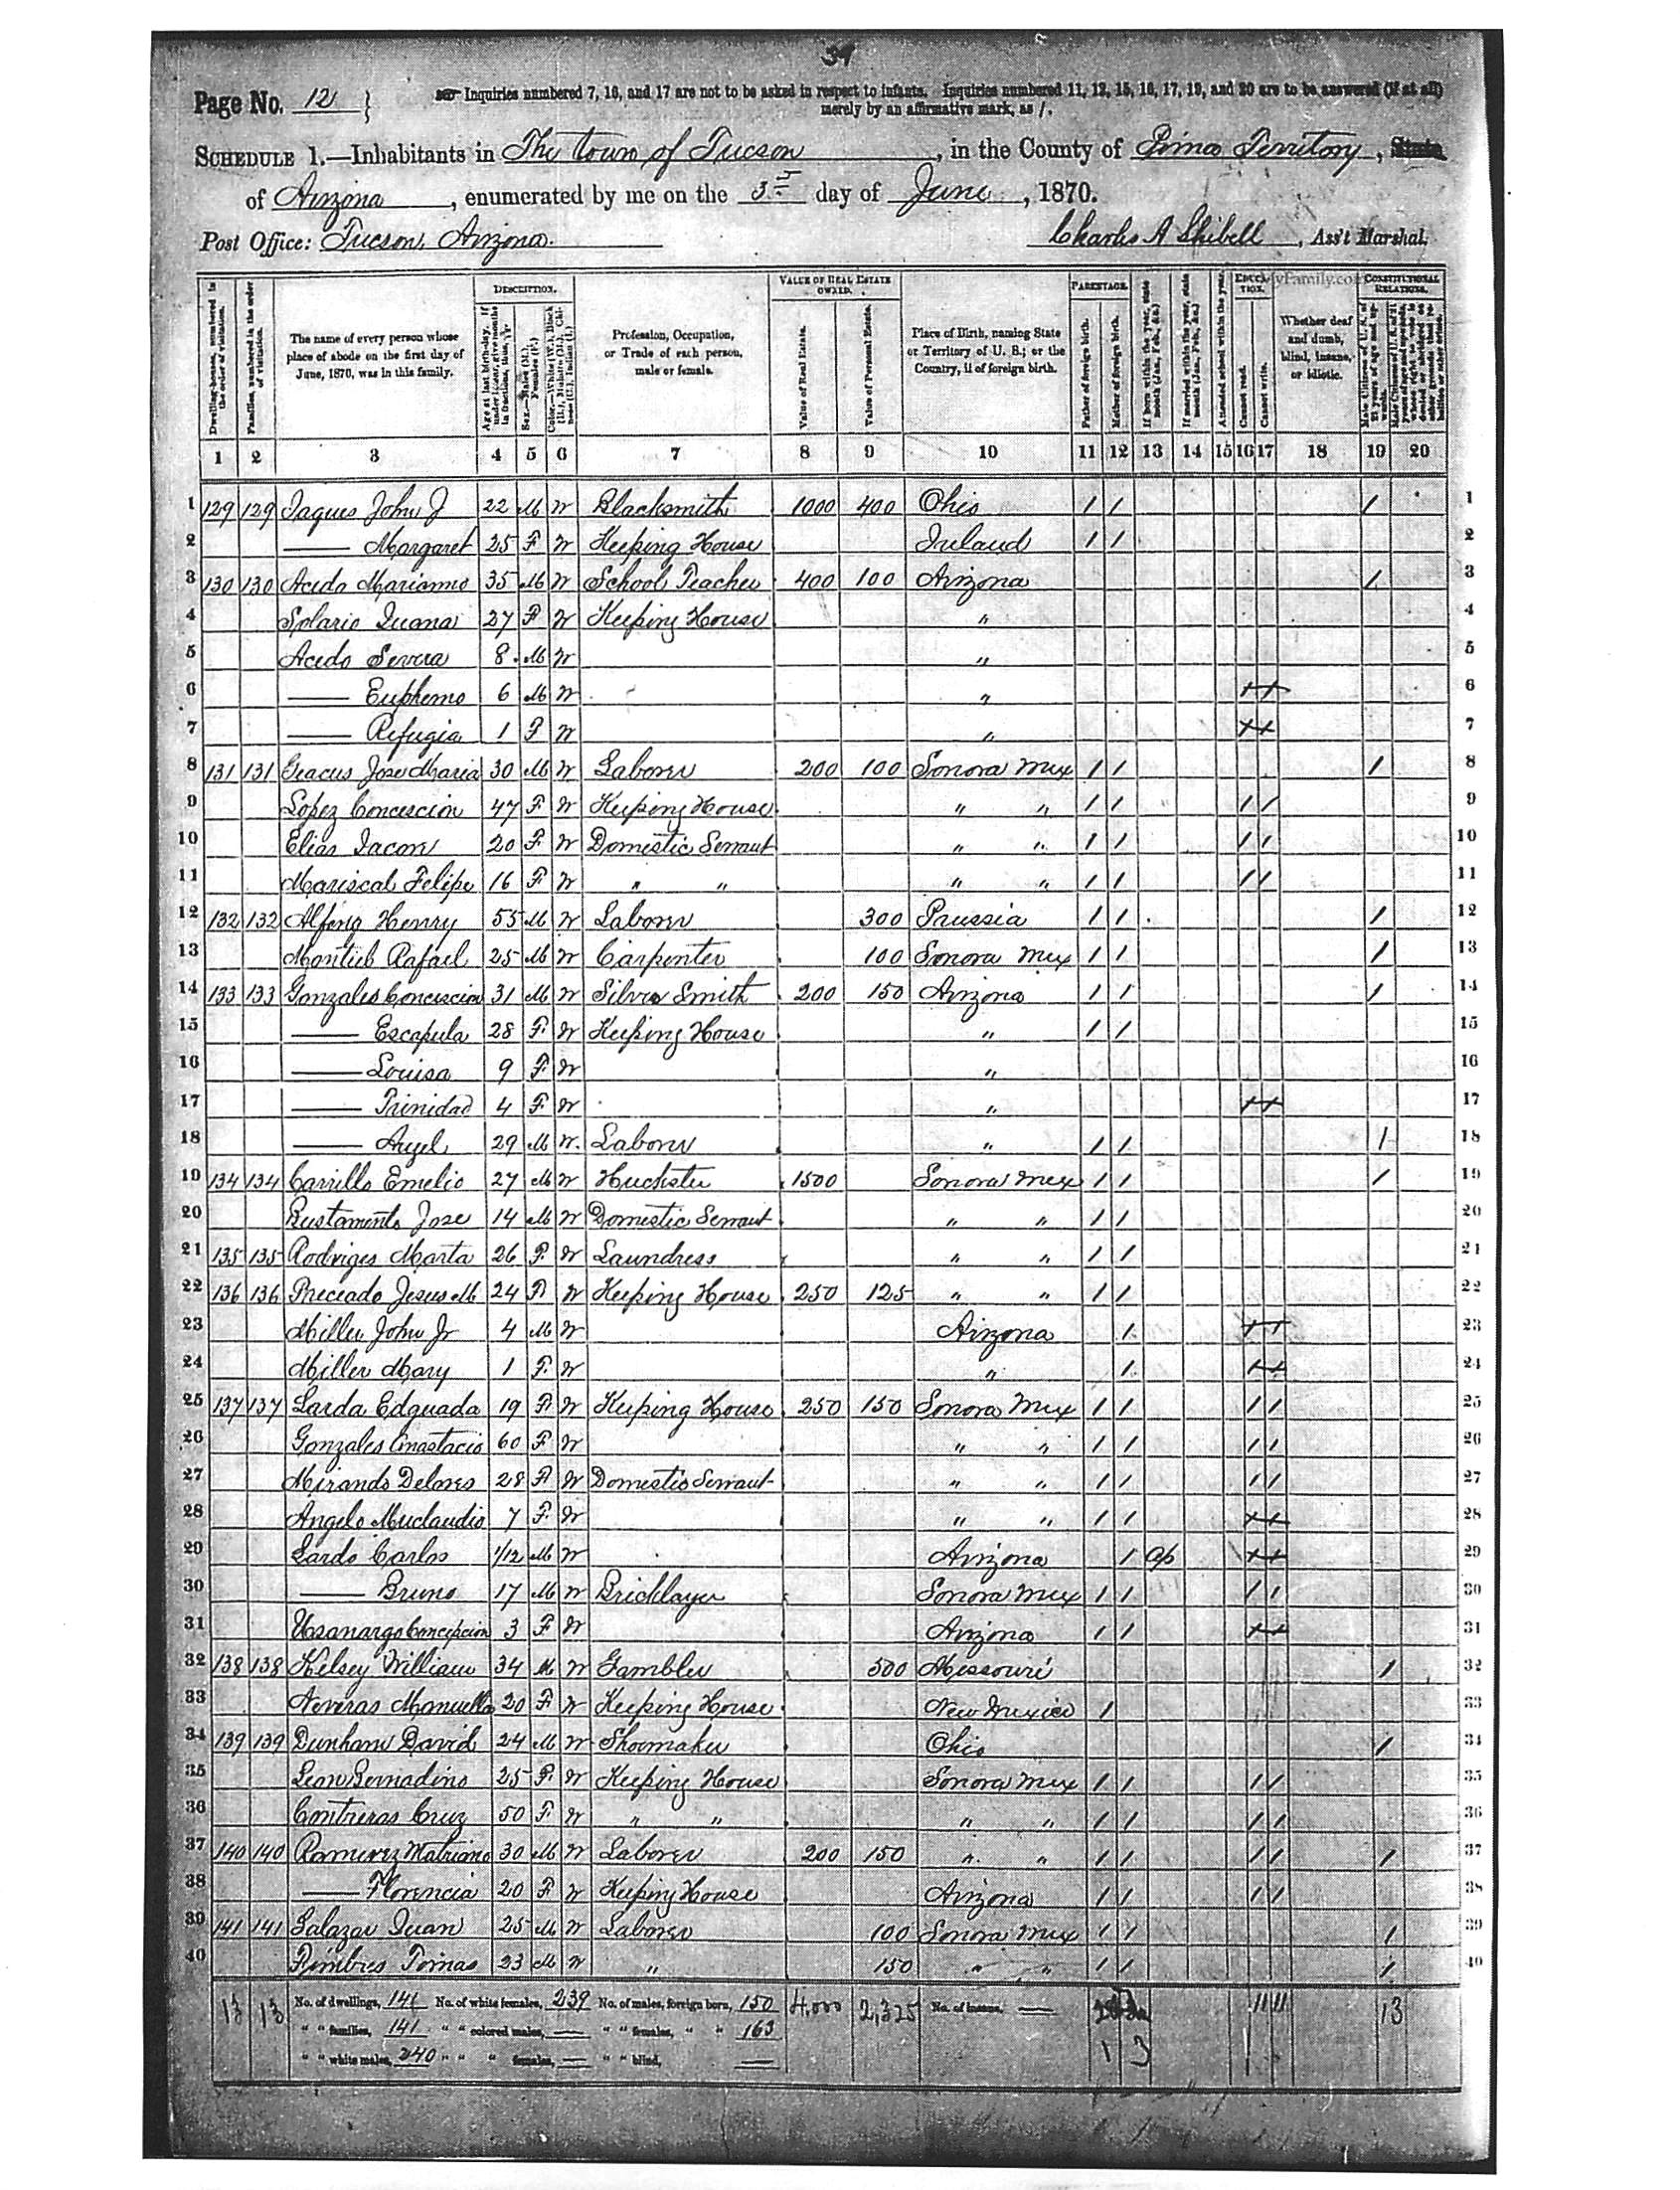 34
Page No. 12 } Inquiries numbered 7, 16, and 17 are not to be asked in respect to infants. Inquiries numbered 11, 12, 15, 16, 17, 19, and 20 are to be answered (if at all)
merely by an affirmative mark, as /.
SCHEDULE 1.—Inhabitants in The town of Tucson, in the County of Pima Territory, State
of Arizona, enumerated by me on the 3 day of June, 1870.
Post Office: Tucson, Arizona. Charles A Shibell, Ass't Marshal.
Dwelling-houses, numbered in the order of visitation.
Families, numbered in the order of visitation.
The name of every person whose place of abode on the first day of June, 1870, was in this family.
DESCRIPTION.
Age at last birth-day. If under 1 year, give months in fractions, thus,
Sex.—Males (M.), Females (F.)
Color.—White (W.), Black (B.), Mulatto (M.), Chinese (C.), Indian (I.)
Profession, Occupation, or Trade of each person, male or female.
VALUE OF REAL ESTATE OWNED.
Value of Real Estate.
Value of Personal Estate.
Place of Birth, naming State or Territory of U. S.; or the Country, if of foreign birth.
PARENTAGE.
Father of foreign birth.
Mother of foreign birth.
If born within the year, state month (Jan., Feb., &c.)
If married within the year, state month (Jan., Feb., &c.)
Attended school within the year.
EDUCATION.
Cannot read.
Cannot write.
yFamily.co
Whether deaf and dumb, blind, insane, or idiotic.
CONSTITUTIONAL RELATIONS.
1 2 3 4 5 6 7 8 9 10 11 12 13 14 15 16 17 18 19 20
1 129 129 Jaques John J 22 M W Blacksmith 1000 400 Ohio / / / 1
2 —— Margaret 25 F W Keeping House Ireland / / 2
3 130 130 Acedo Marianno 35 M W School Teacher 400 100 Arizona / 3
4 Solario Juana 27 F W Keeping House " 4
5 Acedo Severa 8 M W " 5
6 —— Euphemo 6 M W " + + 6
7 —— Refugia 1 F W " + + 7
8 131 131 Jose Maria 30 M W Laborer 200 100 Sonora Mex / / / 8
9 Lopez Concescion 47 F W Keeping House " " / / / / 9
10 Elias Jacon 20 F W Domestic Servant " " / / / / 10
11 Mariscal Felipe 16 F W " " " " / / / / 11
12 132 132 Henry 55 M W Laborer 300 Prussia / / / 12
13 Montieb Rafael 25 M W Carpenter 100 Sonora Mex / / / 13
14 133 133 Gonzales Concescion 31 M W Silver Smith 200 150 Arizona / / / 14
15 —— Escapula 28 F W Keeping House " / / 15
16 —— Louisa 9 F W " 16
17 —— Trinidad 4 F W " + + 17
18 —— Angel 29 M W Laborer " / / / 18
19 134 134 Carrillo Emelio 27 M W Huckster 1500 Sonora Mex / / / 19
20 Bustamento Jose 14 M W Domestic Servant " " / / 20
21 135 135 Rodriges Marta 26 F W Laundress " " / / 21
22 136 136 Preciado Jesus M 24 F W Keeping House 250 125 " " / / 22
23 Miller John Jr 4 M W Arizona / + + 23
24 Miller Mary 1 F W " / + + 24
25 137 137 Larda Edguada 19 F W Keeping House 250 150 Sonora Mex / / / / 25
26 Gonzales Anastacio 60 F W " " / / / / 26
27 Mirando Delores 28 F W Domestic Servant " " / / / / 27
28 Angelo Muclaudio 7 F W " " / / + + 28
29 Lardo Carlos 1/12 M W Arizona / Ap + + 29
30 —— Bruno 17 M W Bricklayer Sonora Mex / / / / 30
31 Concepcion 3 F W Arizona / / + + 31
32 138 138 Kelsey William 34 M W Gambler 500 Missouri / 32
33 Neveras Manuella 20 F W Keeping House New Mexico / 33
34 139 139 Dunham David 24 M W Shoemaker Ohio / 34
35 Leon Bernadino 25 F W Keeping House Sonora Mex / / / / 35
36 Contreras Cruz 50 F W " " " " / / / / 36
37 140 140 Ramirez Matriano 30 M W Laborer 200 150 " " / / / / / 37
38 —— Florencia 20 F W Keeping House Arizona / / / / 38
39 141 141 Salazar Juan 25 M W Laborer 100 Sonora Mex / / / 39
40 Rimbres Tomas 23 M W " 150 " " / / / 40
13 13 No. of dwellings, 141 No. of white females, 239 No. of males, foreign born, 150 4,000 2,325 No. of insane, — 11 11 13
" " families, 141 " " colored males, — " " females, " " 163
" " white males, 240 " " " females, — " " blind, — 1 3